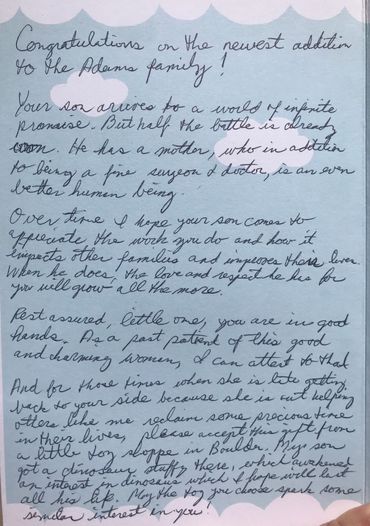 Congratulations on the newest addition
to the Adams family!
Your son arrives to a world of infinite
promise. But half the battle is already
won. He has a mother, who in addition
to being a fine surgeon & doctor, is an even
better human being.
Over time I hope your son comes to
appreciate the work you do and how it
impacts other families and improves their lives.
When he does, the love and respect he has for
you will grow all the more.
Rest assured, little one, you are in good
hands. As a past patient of this good
and charming woman, I can attest to that.
And for those times when she is late getting
back to your side because she is out helping
others like me reclaim some precious time
in their lives, please accept this gift from
a little toy shoppe in Boulder. My son
got a dinosaur stuffy there, which awakened
an interest in dinosaurs which I hope will last
all his life. May the toy you choose spark some
similar interest in you!